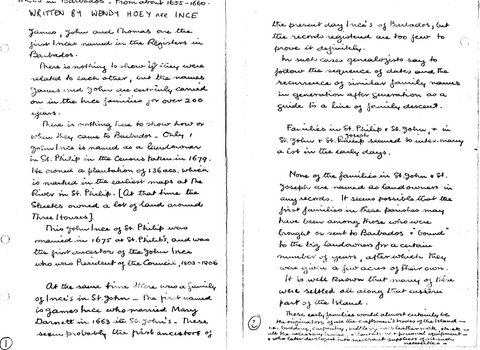 Inces in Barbados - From about 1655-1660.
WRITTEN BY WENDY HOEY née INCE
James, John and Thomas are the
first Inces named in the Registers in
Barbados.
There is nothing to show if they were
related to each other, but the names
James and John are certainly carried
on in the Ince families for over 200
years.
There is nothing here to show how or
when they came to Barbados - Only 1
John Ince is named as a landowner
in St. Philip in the Census taken in 1679.
He owned a plantation of 136 acs. which
is marked in the earliest maps at The
River in St. Philip. [At that time the
owned a lot of land around
Three Houses]
This John Ince of St. Philip was
married in 1675 at St. Philip's, and was
the first ancestor of the John Ince
who was President of the Council, 1803-1806
At the same time there was a family
of Ince's in St. John - The first named
is James Ince who married Mary
Darnett in 1663 in St. John's - These
seem probably the first ancestors of
1
the present day Ince's of Barbados, but
the records registered are too few to
prove it definitely.
In such cases genealogists say to
follow the sequence of dates and the
recurrence of similar family names
in generation after generation as a
guide to a line of family descent.
Families in St. Philip & St. John, & in
St. John & St. Joseph seemed to inter-marry
a lot in the early days.
None of the families in St. John & St.
Joseph are named as landowners in
any records. It seems possible that the
first families in these parishes may
have been among those who were
brought or sent to Barbados & "bound"
to the big landowners for a certain
number of years, after which they
were given a few acres of their own.
It is well known that many of these
were settled all along that eastern
part of the Island.
These families would almost certainly be
the originators of all the craftsmen's trades of the Island -
i.e. building, carpentry,
all the necessary
who later developed into merchant suppliers of all such
necessities -
2